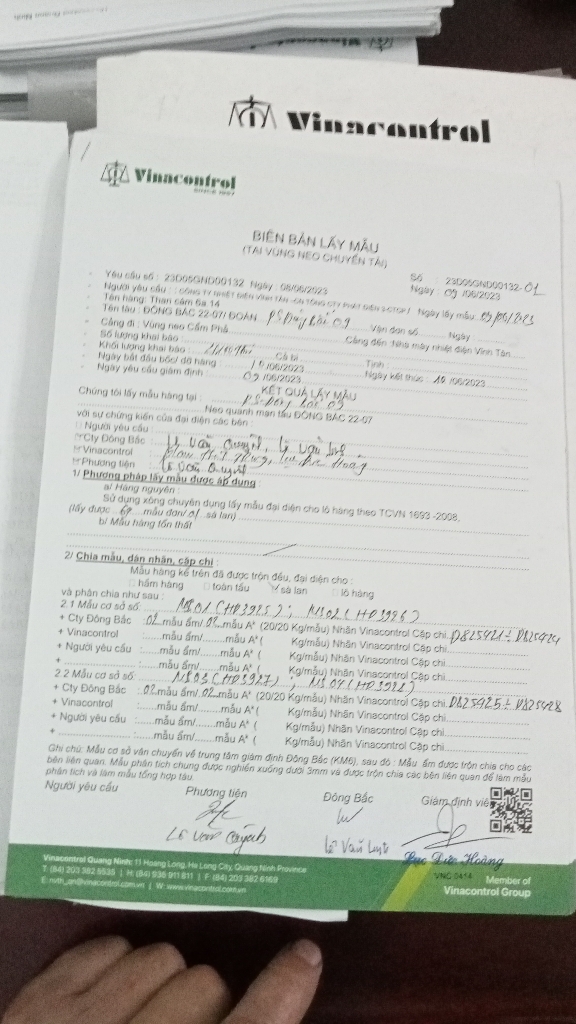 Vinacontrol
Vinacontrol
BIÊN BẢN LẤY MẪU
(TẠI VÙNG NEO CHUYỂN TẢI)
Số : 23D05GND00132-01
Yêu cầu số : 23D05GND00132 Ngày : 08/06/2023 Ngày : 09/06/2023
Người yêu cầu : CÔNG TY NHIỆT ĐIỆN VĨNH TÂN
Tên hàng: Than cám 6a.14 Ngày lấy mẫu
Tên tàu : ĐÔNG BẮC 22-07/ ĐOÀN Vận đơn số Ngày
Cảng đi : Vùng neo Cẩm Phả Cảng đến: Nhà máy nhiệt điện Vĩnh Tân
Số lượng khai báo
Khối lượng khai báo : Cả bì Tịnh :
Ngày bắt đầu bốc/ dỡ hàng : 10/06/2023 Ngày kết thúc : 10/06/2023
Ngày yêu cầu giám định : 09/06/2023
KẾT QUẢ LẤY MẪU
Chúng tôi lấy mẫu hàng tại :
Neo quanh mạn tàu ĐÔNG BẮC 22-07
với sự chứng kiến của đại diện các bên :
Người yêu cầu :
Cty Đông Bắc : Lê Văn Quỳnh, Lê Văn
Vinacontrol :
Phương tiện : Lê Văn Quỳnh
1/ Phương pháp lấy mẫu được áp dụng :
a/ Hàng nguyên :
Sử dụng xông chuyên dụng lấy mẫu đại diện cho lô hàng theo TCVN 1693 -2008.
(lấy được mẫu đơn/01 sà lan)
b/ Mẫu hàng tổn thất
2/ Chia mẫu, dán nhãn, cặp chì :
Mẫu hàng kể trên đã được trộn đều, đại diện cho :
hầm hàng toàn tàu sà lan lô hàng
và phân chia như sau :
2.1 Mẫu cơ sở số: NS01 (HD3925) ; NS02 (HD3996)
+ Cty Đông Bắc : 02 mẫu ẩm/ 02 mẫu A* (20/20 Kg/mẫu) Nhãn Vinacontrol Cặp chì D825421 ÷ D825424
+ Vinacontrol :......mẫu ẩm/......mẫu A*( Kg/mẫu) Nhãn Vinacontrol Cặp chì
+ Người yêu cầu :......mẫu ẩm/......mẫu A*( Kg/mẫu) Nhãn Vinacontrol Cặp chì
+ :......mẫu ẩm/......mẫu A* ( Kg/mẫu) Nhãn Vinacontrol Cặp chì
2.2 Mẫu cơ sở số: NS03 (HD3927) ; NS04
+ Cty Đông Bắc : 02 mẫu ẩm/ 02 mẫu A* (20/20 Kg/mẫu) Nhãn Vinacontrol Cặp chì D825425 ÷ D825428
+ Vinacontrol :......mẫu ẩm/......mẫu A* ( Kg/mẫu) Nhãn Vinacontrol Cặp chì
+ Người yêu cầu :......mẫu ẩm/......mẫu A* ( Kg/mẫu) Nhãn Vinacontrol Cặp chì
+ :......mẫu ẩm/......mẫu A* ( Kg/mẫu) Nhãn Vinacontrol Cặp chì
Ghi chú: Mẫu cơ sở vận chuyển về trung tâm giám định Đông Bắc (KM6), sau đó : Mẫu ẩm được trộn chia cho các
bên liên quan. Mẫu phân tích chung được nghiền xuống dưới 3mm và được trộn chia các bên liên quan để làm mẫu
phân tích và làm mẫu tổng hợp tàu.
Người yêu cầu Phương tiện Đông Bắc Giám định viên
Lê Văn Quỳnh Lê Văn Đức Hoàng
VNC 0414
Vinacontrol Quang Ninh: 11 Hoang Long, Ha Long City, Quang Ninh Province
T: (84) 203 382 5535 | H: (84) 936 911 811 | F (84) 203 382 6169
W: www.vinacontrol.com.vn
Member of
Vinacontrol Group